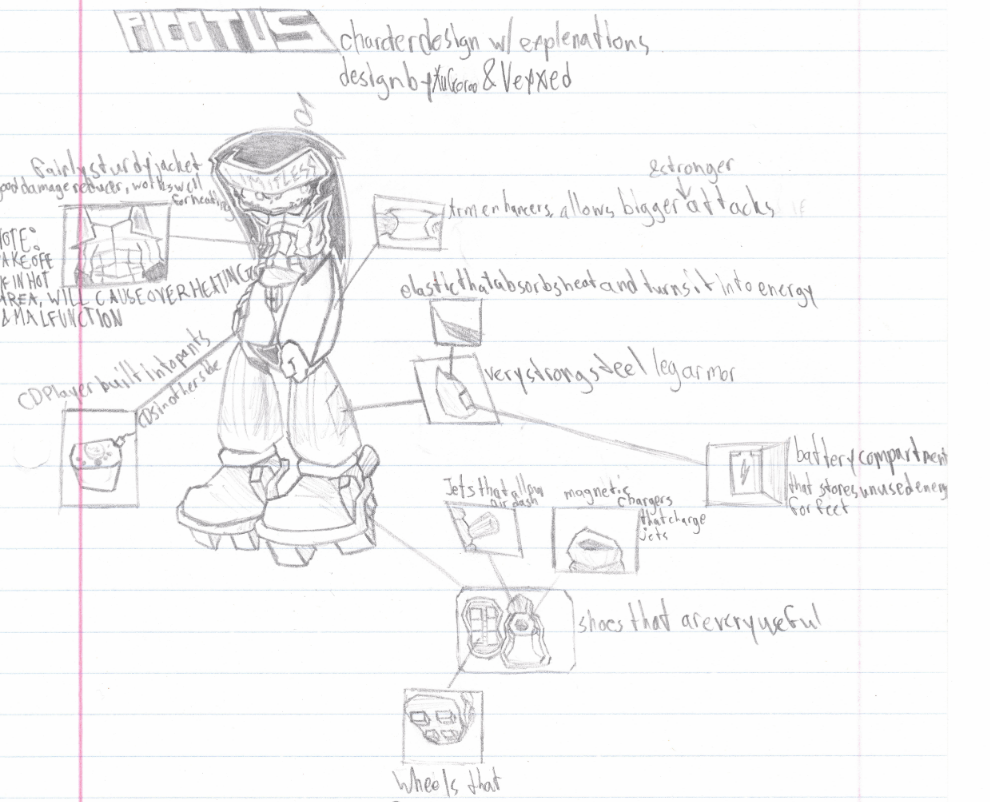 PICOTUS
charcterdesign w/ explenations
design by & Veyxed
fairly sturdy jacket
good damage reducer, works well
for heating
NOTE:
TAKE OFF
IF IN HOT
AREA, WILL CAUSE OVERHEATING
& MALFUNCTION
LIMITLESS
& stronger
Arm enhancers, allows bigger attacks
elastic that absorbs heat and turns it into energy
very strong steel leg armor
CD Player built into pants
CDs in other side
battery compartment
that stores unused energy
for feet
Jets that allow
air dash
magnetic
chargers
that charge
jets
shoes that are very useful
Wheels that